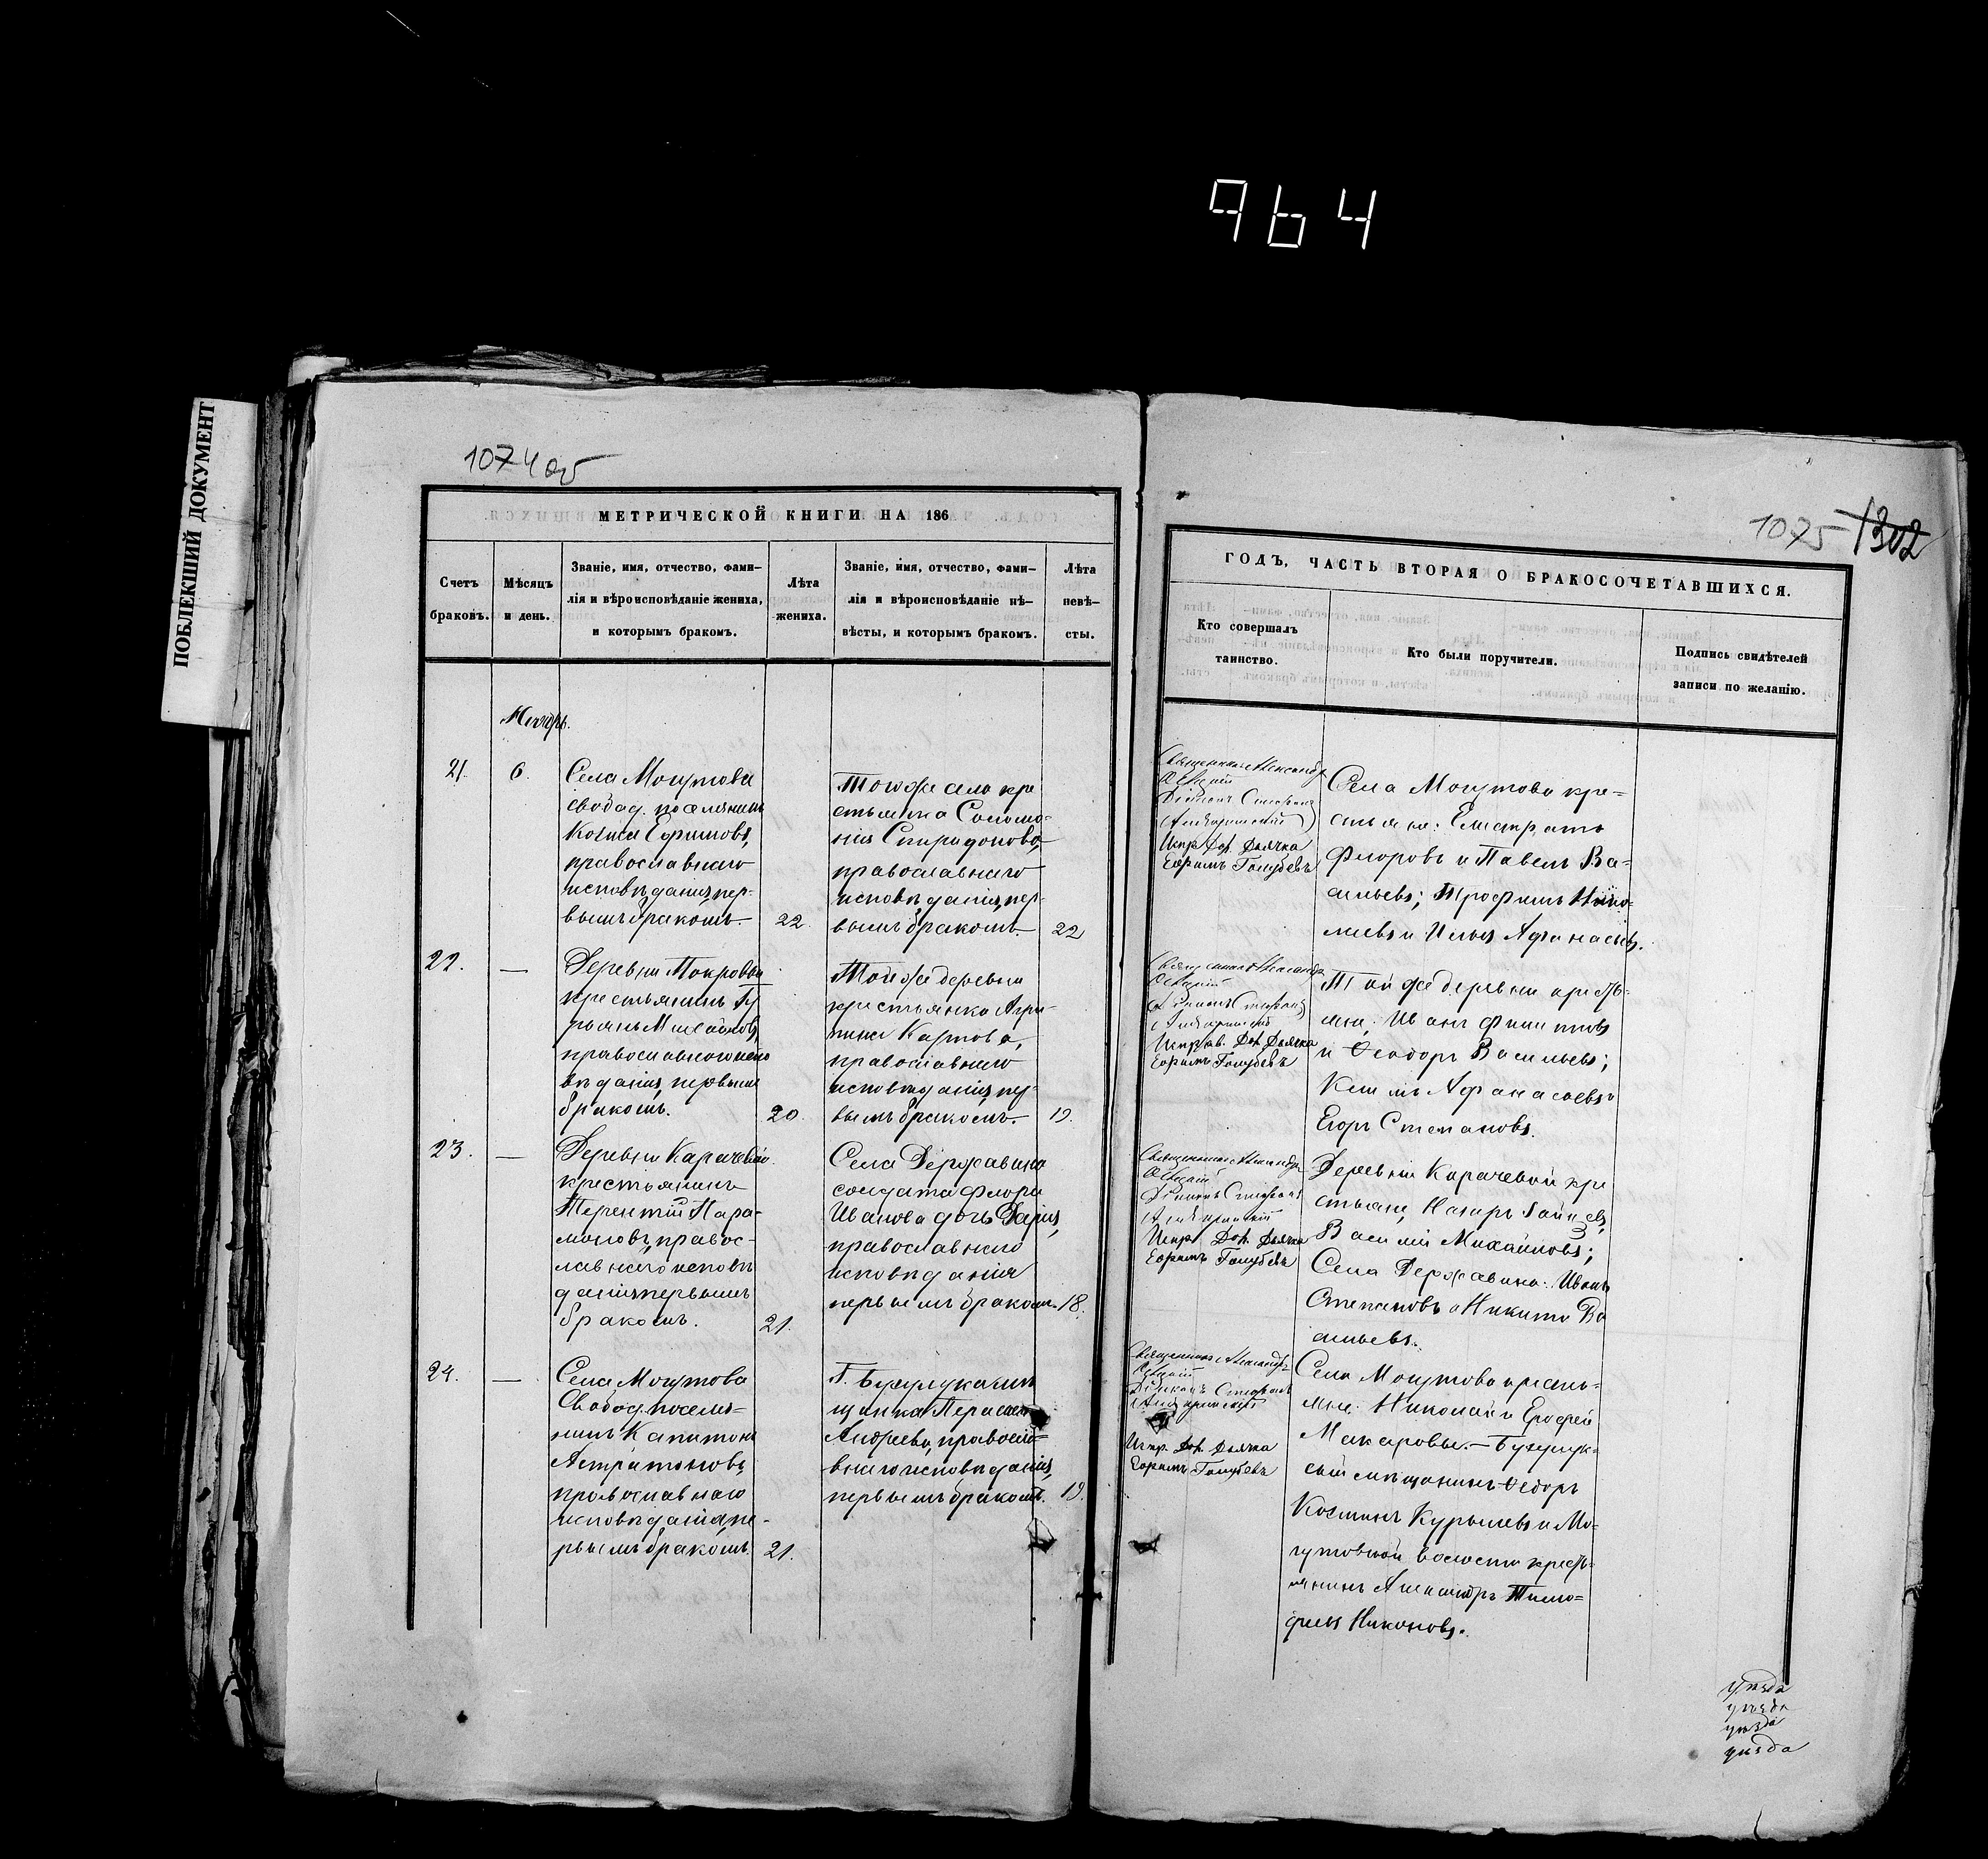 964
ПОБЛЕКШИЙ ДОКУМЕНТ
1074об
МЕТРИЧЕСКОЙ КНИГИ НА 186
Счетъ браковъ.
Мѣсяцъ и день.
Званіе, имя, отчество, фами-
лія и вѣроисповѣданіе жениха,
и которымъ бракомъ.
Лѣта жениха.
Званіе, имя, отчество, фами-
лія и вѣроисповѣданіе не-
вѣсты, и которымъ бракомъ.
Лѣта невѣ-
сты.
21.
6.
Села Могутова
свобод. поселянинъ
Козма Ефимовъ,
православнаго
исповѣданія, пер-
вымъ бракомъ.
22.
Тогоже села кре
стьянка Соломо-
нія Спиридонова,
православнаго
исповѣданія, пер-
вымъ бракомъ.
22
22.
—
Деревни Покровки
крестьянинъ Гу
рьянъ Михайловъ,
православнаго испо
вѣданія, первымъ
бракомъ.
20.
Тойже деревни
крестьянка Агри-
пина Карпова,
православнаго
исповѣданія, пер-
вымъ бракомъ.
19.
23.
—
Деревни Карачевой
крестьянинъ
Терентій Пара-
моновъ, правос-
лавнаго исповѣ
данія первымъ
бракомъ.
21.
Села Державина
солдата Флора
Иванова дочь Дарія,
православнаго
исповѣданія
первымъ бракомъ.
18.
24.
—
Села Могутова
Свобод. поселя-
нинъ Капитонъ
православнаго
исповѣданія, пе-
рвымъ бракомъ.
21.
Г. Бузулука мѣ
щанка
Андреева, правосла-
внаго исповѣданія,
первымъ бракомъ.
19.
1075
1302
ГОДЪ, ЧАСТЬ ВТОРАЯ О БРАКОСОЧЕТАВШИХСЯ.
Кто совершалъ
таинство.
Кто были поручители.
Подпись свидѣтелей
записи по желанію.
Священникъ Александръ
Діаконъ Стефанъ
Испр. Дол. Дьячка
Ефимъ Голубевъ
Села Могутова кре-
стьяне: Елистратъ
Флоровъ и Павелъ Ва-
сильевъ; Трофимъ Нико-
лаевъ и Илья Афанасьевъ.
Священникъ Александръ
Діаконъ Стефанъ
Испр. Дол. Дьячка
Ефимъ Голубевъ
Той же деревни кресть-
яне: Иванъ Филиповъ
и Ѳеодоръ Васильевъ;
Афанасьевъ и
Егоръ Степановъ.
Священникъ Александръ
Діаконъ Стефанъ
Испр. Дол. Дьячка
Ефимъ Голубевъ
Деревни Карачевой кре
стьяне, Назаръ
Василій Михайловъ;
Села Державина: Иванъ
Степановъ и Никита Ва
сильевъ.
Священникъ Александръ
Діаконъ Стефанъ
Испр. Дол. Дьячка
Ефимъ Голубевъ
Села Могутова кресть-
яне: Николай и Ерофей
Макаровы. — Бузулук-
скій мѣщанинъ Ѳедоръ
Костинъ Курышевъ и Мо-
гутовской волости кресть-
янинъ Александръ Тимо-
феевъ Никоновъ.
уѣзда
уѣзда
уѣзда
уѣзда